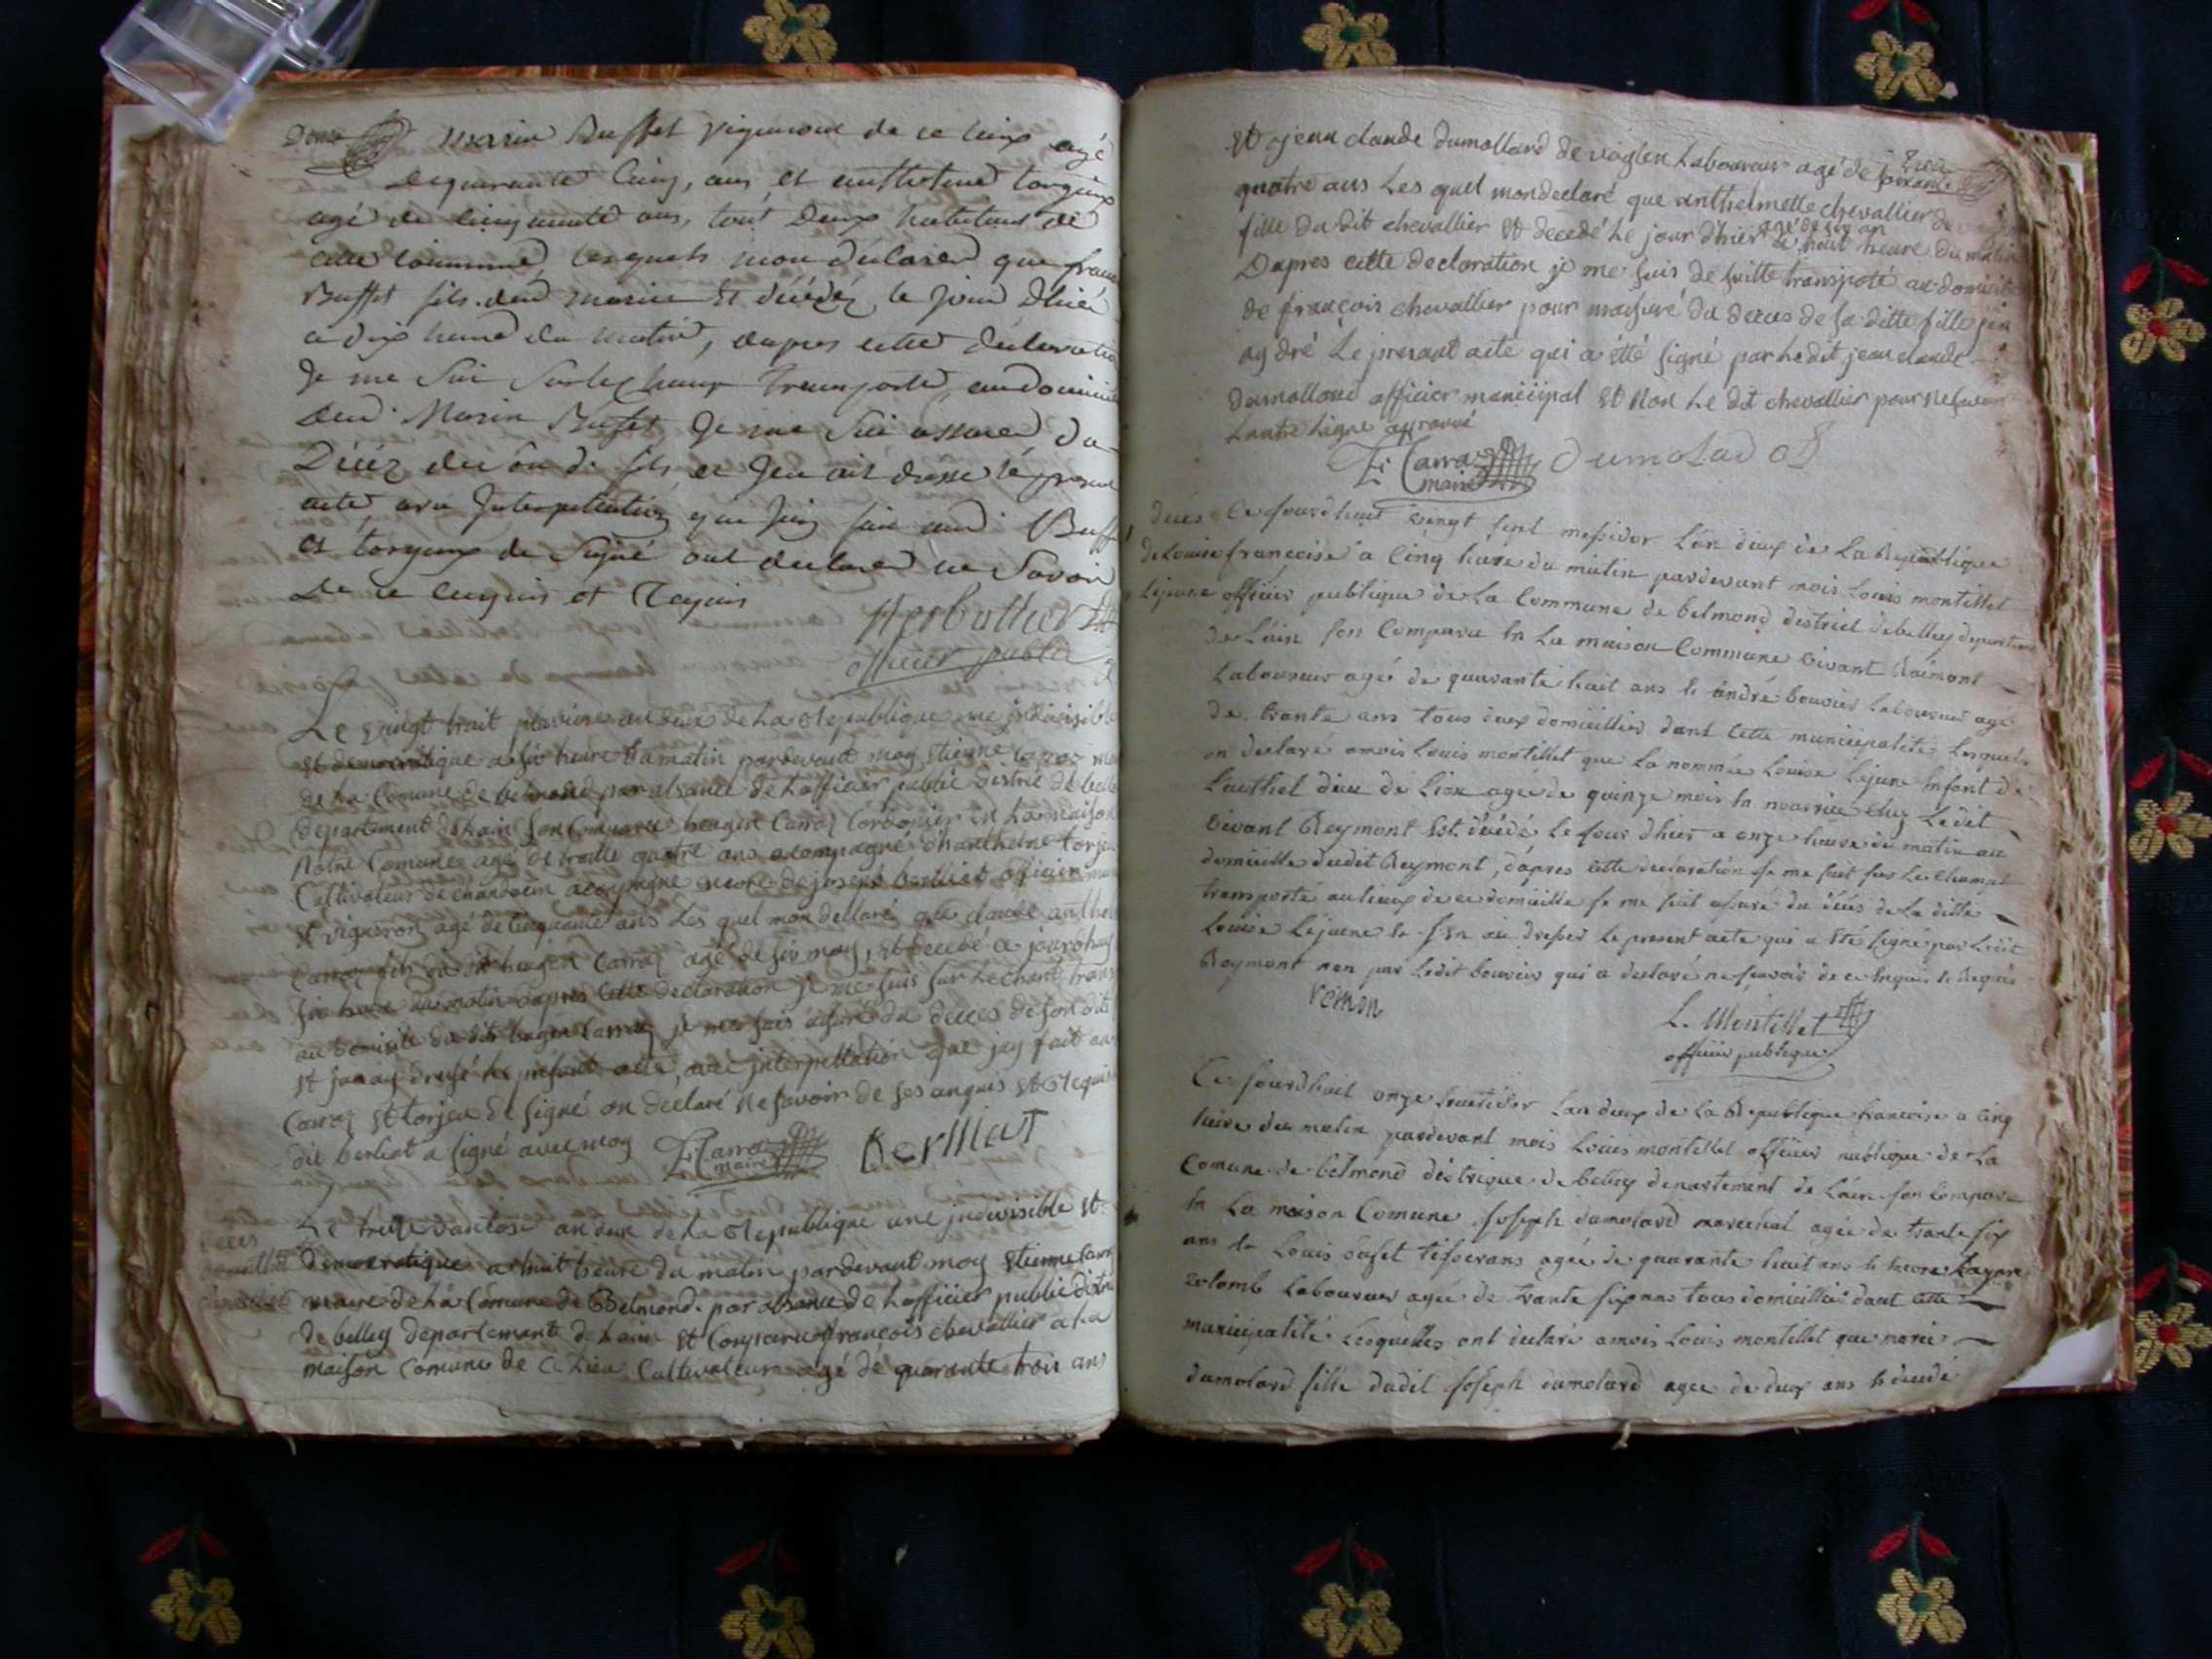 Marin Buffet vigneron de ce lieux agé
de quarante Cinq, ans et anthelme
agé de cinquante ans, tout deux habitant de
cette commune, lesquels mon déclaré que
Buffet fils dud marin et décédez le jour dhié
a dix heure du matin, dapres cette déclaration
Je me sui sur le champ transporté au domicile
dud. Marin Bufet Je me sui assuré du
Décéz du son d. fils et Jen ait dresse lé present
acte avec Interpellation que Jay fait aud.
et torjeux de signé ont declaré ne savoir
De ce enquis et Requis
officier public
Le vingt huit pluviose an deux de La Republique une jndivisible
et democratique a six heure du matin pardevant moy Etienne Carraz
de la Comune de belmond par absance de Lofficier public distric de belley
departement de Lain son Comparu Carraz Cordonier en La maison
Notre Comune agé de trante quatre ans acompagné danthelme torjeu
Cultivateur de acompagné encore de joseph berlliat officier
et vigneron agé de cinquante ans Les quel mon declaré que claude anthel
Carraz fils du dit Carraz agé de six moy, et decedé a jourdhuy
six heure du matin dapres cette declaration je me suis sur Le chant trans
au domicile du dit Carraz je me suis asuré du deces de son dit
et jan ay dresé Le present acte, avec jnterpellation que jay fait au
Carraz et torjeu de signé on declaré ne savoir de ses anquis et Requis
dit berliat a signé avec moy E. Carraz maire berlliat
Le treize vantose an deux de La Republique une jndivisible et
democratique a huit heure du matin pardevant moy Etienne Carra
maire de La Comune de Belmond par absance de Lofficier public distric
de belley departement de Lain et Comparu françois chevallier a La
maison comune de ce Lieu Cultivateur agé de quarante trois ans
Et jean claude dumollard de voglen Laboureur agé de soixante
quatre ans Les quel mon declaré que anthelmette chevallier
fille du dit chevallier et decedé Le jour dhier a huit heure du matin
Dapres cette declaration je me suis de suitte transporté au domicile
de françois chevallier pour masuré du deces de sa ditte fille jen
ay dré Le present acte qui a étté signé par Le dit jean claude
dumollard officier municipal et Non Le dit chevallier pour ne savoir
Lautre Ligne aprouvé
E. Carraz maire Dumolad of
deces Ce jourdhuit vingt sept messidor Lan deux de La Republique
de Louise francoise a cinq hure du matin pardevant mois Louis montillet
Lejeune officier publique de La Commune de belmond destrict de belley departement
de Lain son Comparu en La maison Commune vivant Raimont
Laboureur agé de quarante huit ans et andré bouvier Laboureur agé
de trante ans tous deux domicillier dant cette municipalité Lesquels
on declaré amois Louis montillet que La nommée Louise Lejune Enfant de
Lauthel dieu de Lion agée de quinze mois en nourrice chez Ledit
vivant Reymont Est décédé Le jour dhier a onze heure du matin au
domicille dudit Reymont, dapres cette declaration je me suit sur Le chamat
transporté au lieux de ce domicille je me suit asuré du décès de La ditte
Louise Lejeune et jen ai dresser Le present acte qui a Eté signé par Ledit
Reymont non par Ledit bouvier qui a declaré ne savoir de ce Enquis et Requis
remon
L. Montillet
officier publique
Ce jourdhuit onze Lan deux de La Republique francoise a cinq
heure du matin pardevant mois Louis montillet officier publique de La
Comune de belmond destrique de belley departement de Lain son Comparu
en La maison Comune joseph dumolard marechal agée de trante six
ans et Louis bufet tisserans agée de quarante huit ans et
colomb Laboureur agée de trante six ans tous domicillié dant cette
municipalité Lesquelles ont declaré amois Louis montillet que marie
dumolard fille dudit joseph dumolard agée de deux ans et decedé